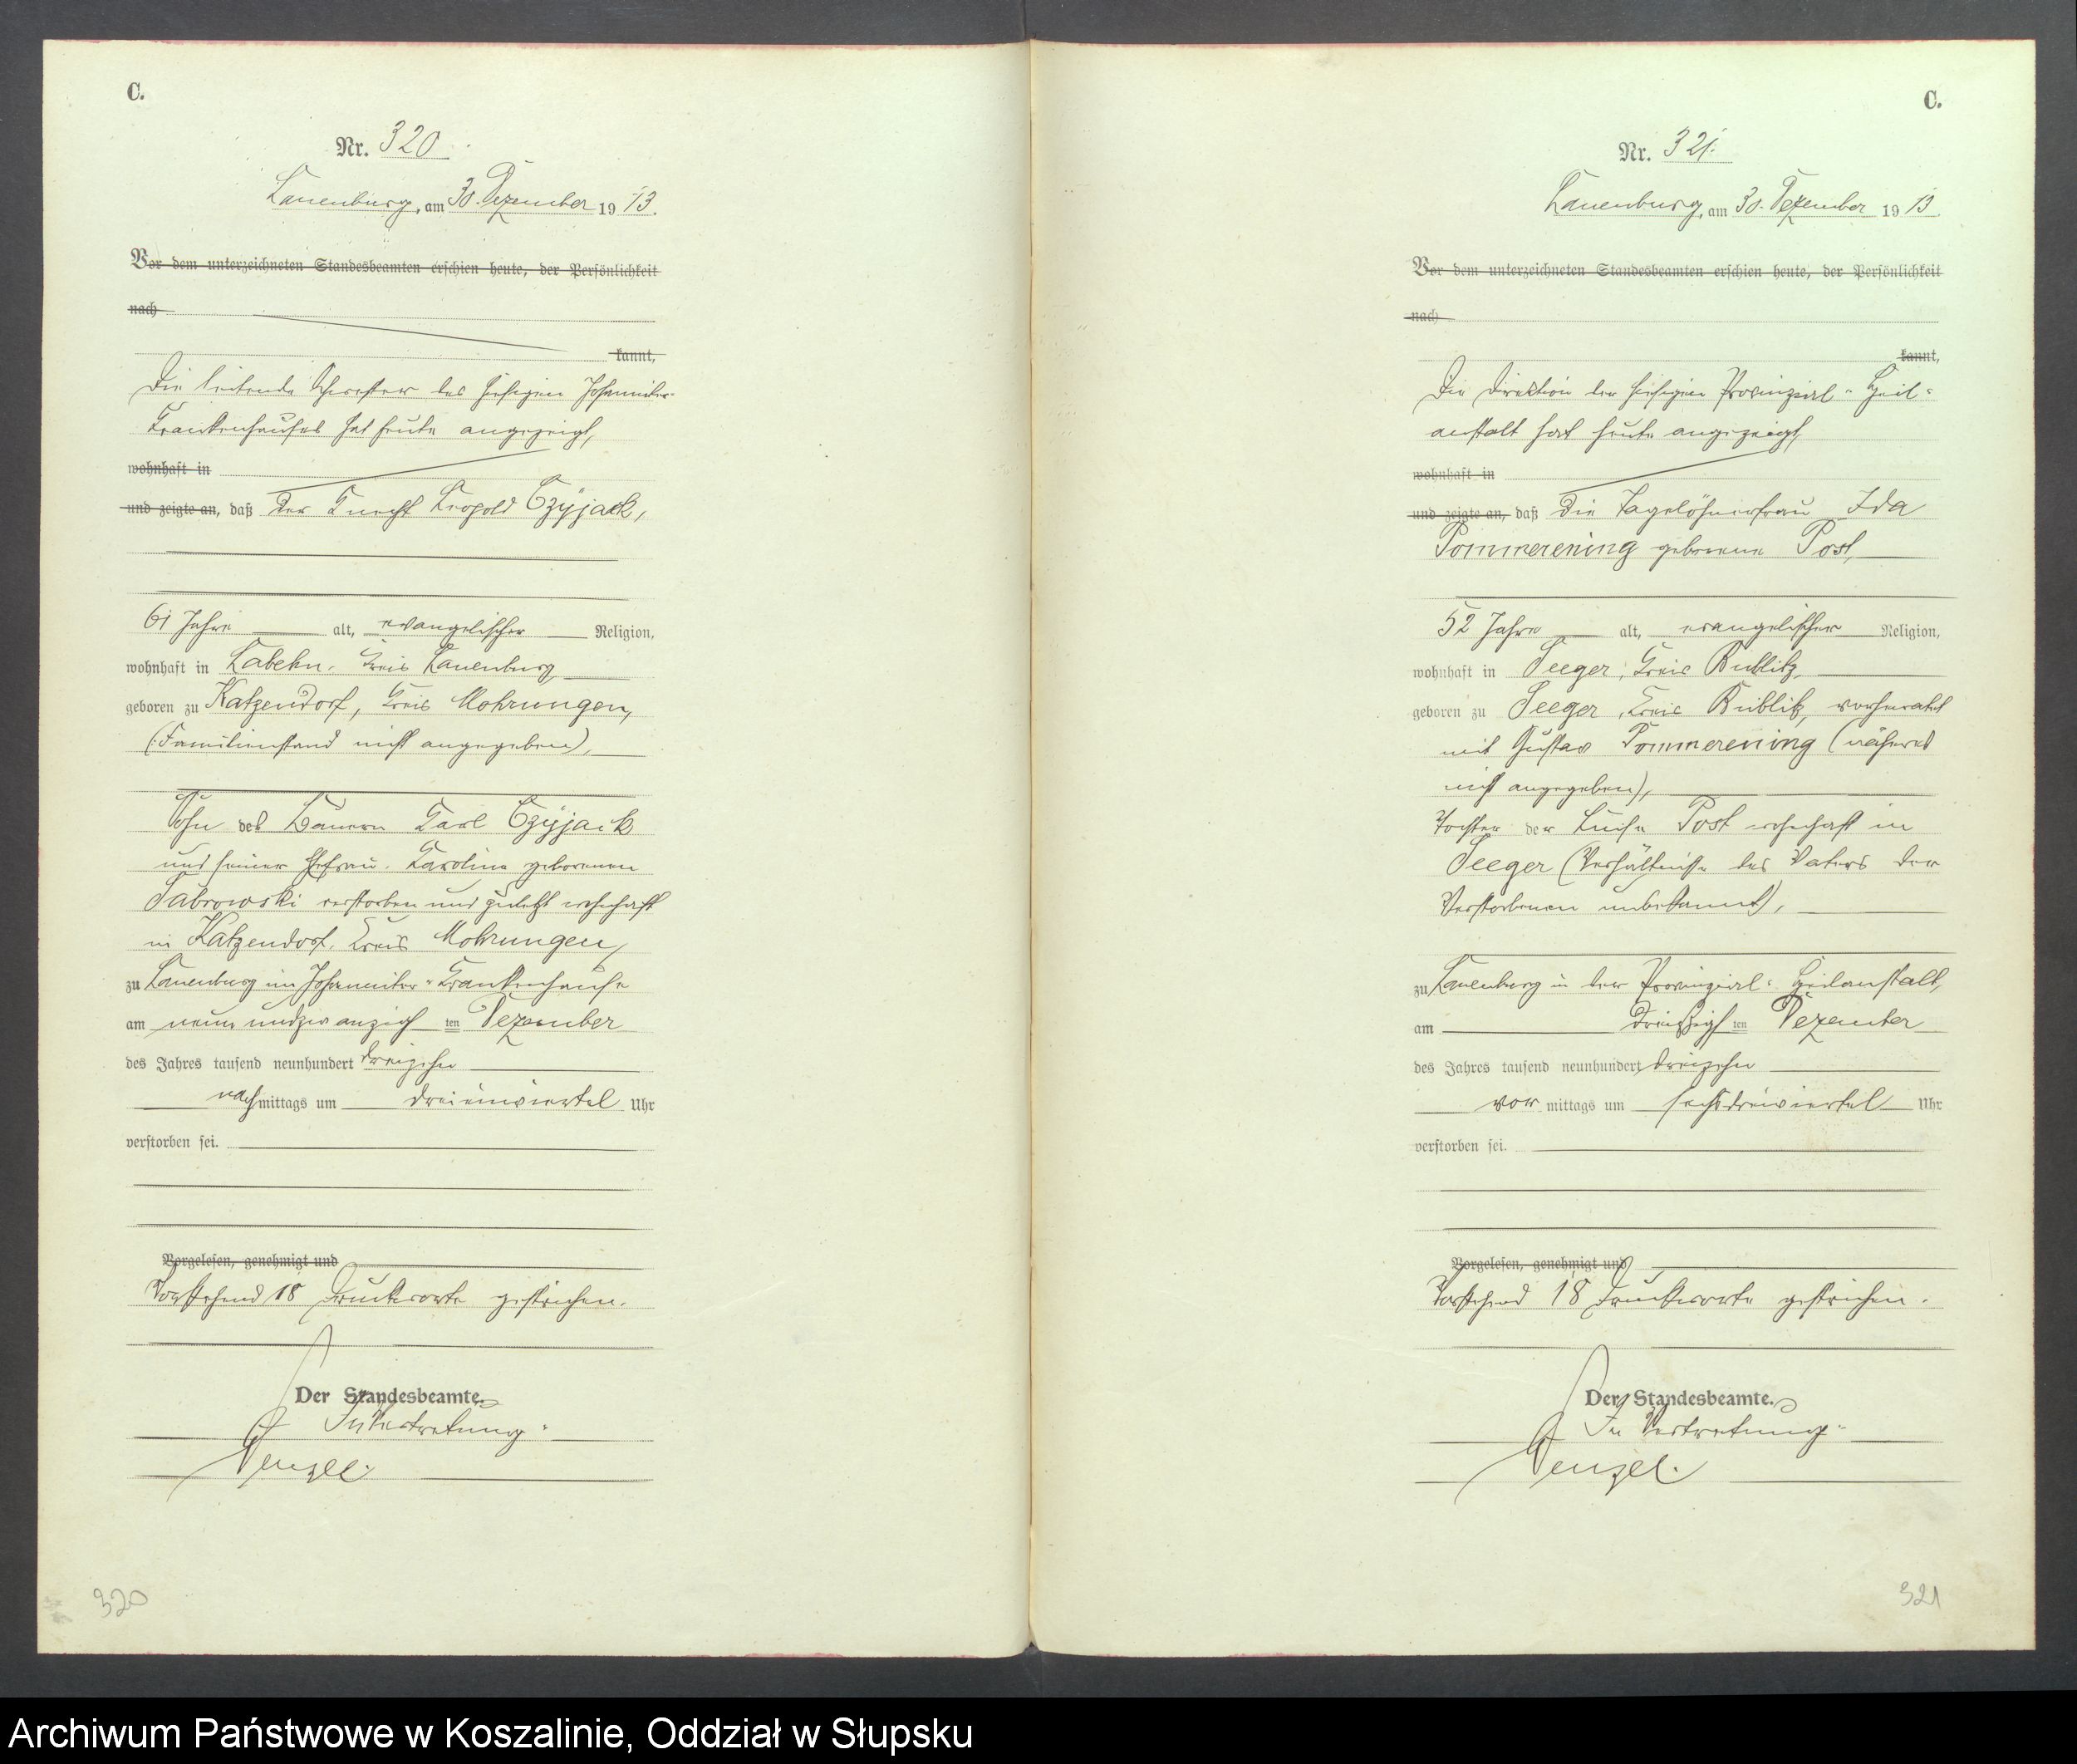 C.
Nr. 320
Lauenburg, am 30. Dezember 1913.
Vor dem unterzeichneten Standesbeamten erschien heute, der Persönlichkeit
nach
kannt,
Die leitende Schwester des hiesigen Johanniter-
Krankenhauses hat heute angezeigt,
wohnhaft in
und zeigte an, daß der Knecht Leopold Czyjack,
61 Jahre alt, evangelischer Religion,
wohnhaft in Labehn, Kreis Lauenburg
geboren zu Katzendorf, Kreis Mohrungen,
(Familienstand nicht angegeben),
Sohn des Bauern Karl Czyjack
und seiner Ehefrau Karoline geborenen
Sabrowski verstorben und zuletzt wohnhaft
in Katzendorf, Kreis Mohrungen,
zu Lauenburg im Johanniter-Krankenhause
am neunundzwanzigsten Dezember
des Jahres tausend neunhundert dreizehn
nachmittags um dreieinviertel Uhr
verstorben sei.
Vorgelesen, genehmigt und
Vorstehend 18 Druckworte gestrichen.
Der Standesbeamte.
In Vertretung:
320
C.
Nr. 321.
Lauenburg, am 30. Dezember 1913.
Vor dem unterzeichneten Standesbeamten erschien heute, der Persönlichkeit
nach
kannt,
Die Direktion der hiesigen Provinzial-Heil-
anstalt hat heute angezeigt,
wohnhaft in
und zeigte an, daß die Tagelöhnerfrau Ida
Pommerening geborene Post,
52 Jahre alt, evangelischer Religion,
wohnhaft in Seeger, Kreis Bublitz,
geboren zu Seeger, Kreis Bublitz, verheiratet
mit Gustav Pommerening (näheres
nicht angegeben),
Tochter der Luise Post wohnhaft in
Seeger (Verhältnisse des Vaters der
Verstorbenen unbekannt),
zu Lauenburg in der Provinzial-Heilanstalt,
am dreißigsten Dezember
des Jahres tausend neunhundert dreizehn
vormittags um sechsdreiviertel Uhr
verstorben sei.
Vorgelesen, genehmigt und
Vorstehend 18 Druckworte gestrichen.
Der Standesbeamte.
In Vertretung:
321
Archiwum Państwowe w Koszalinie, Oddział w Słupsku